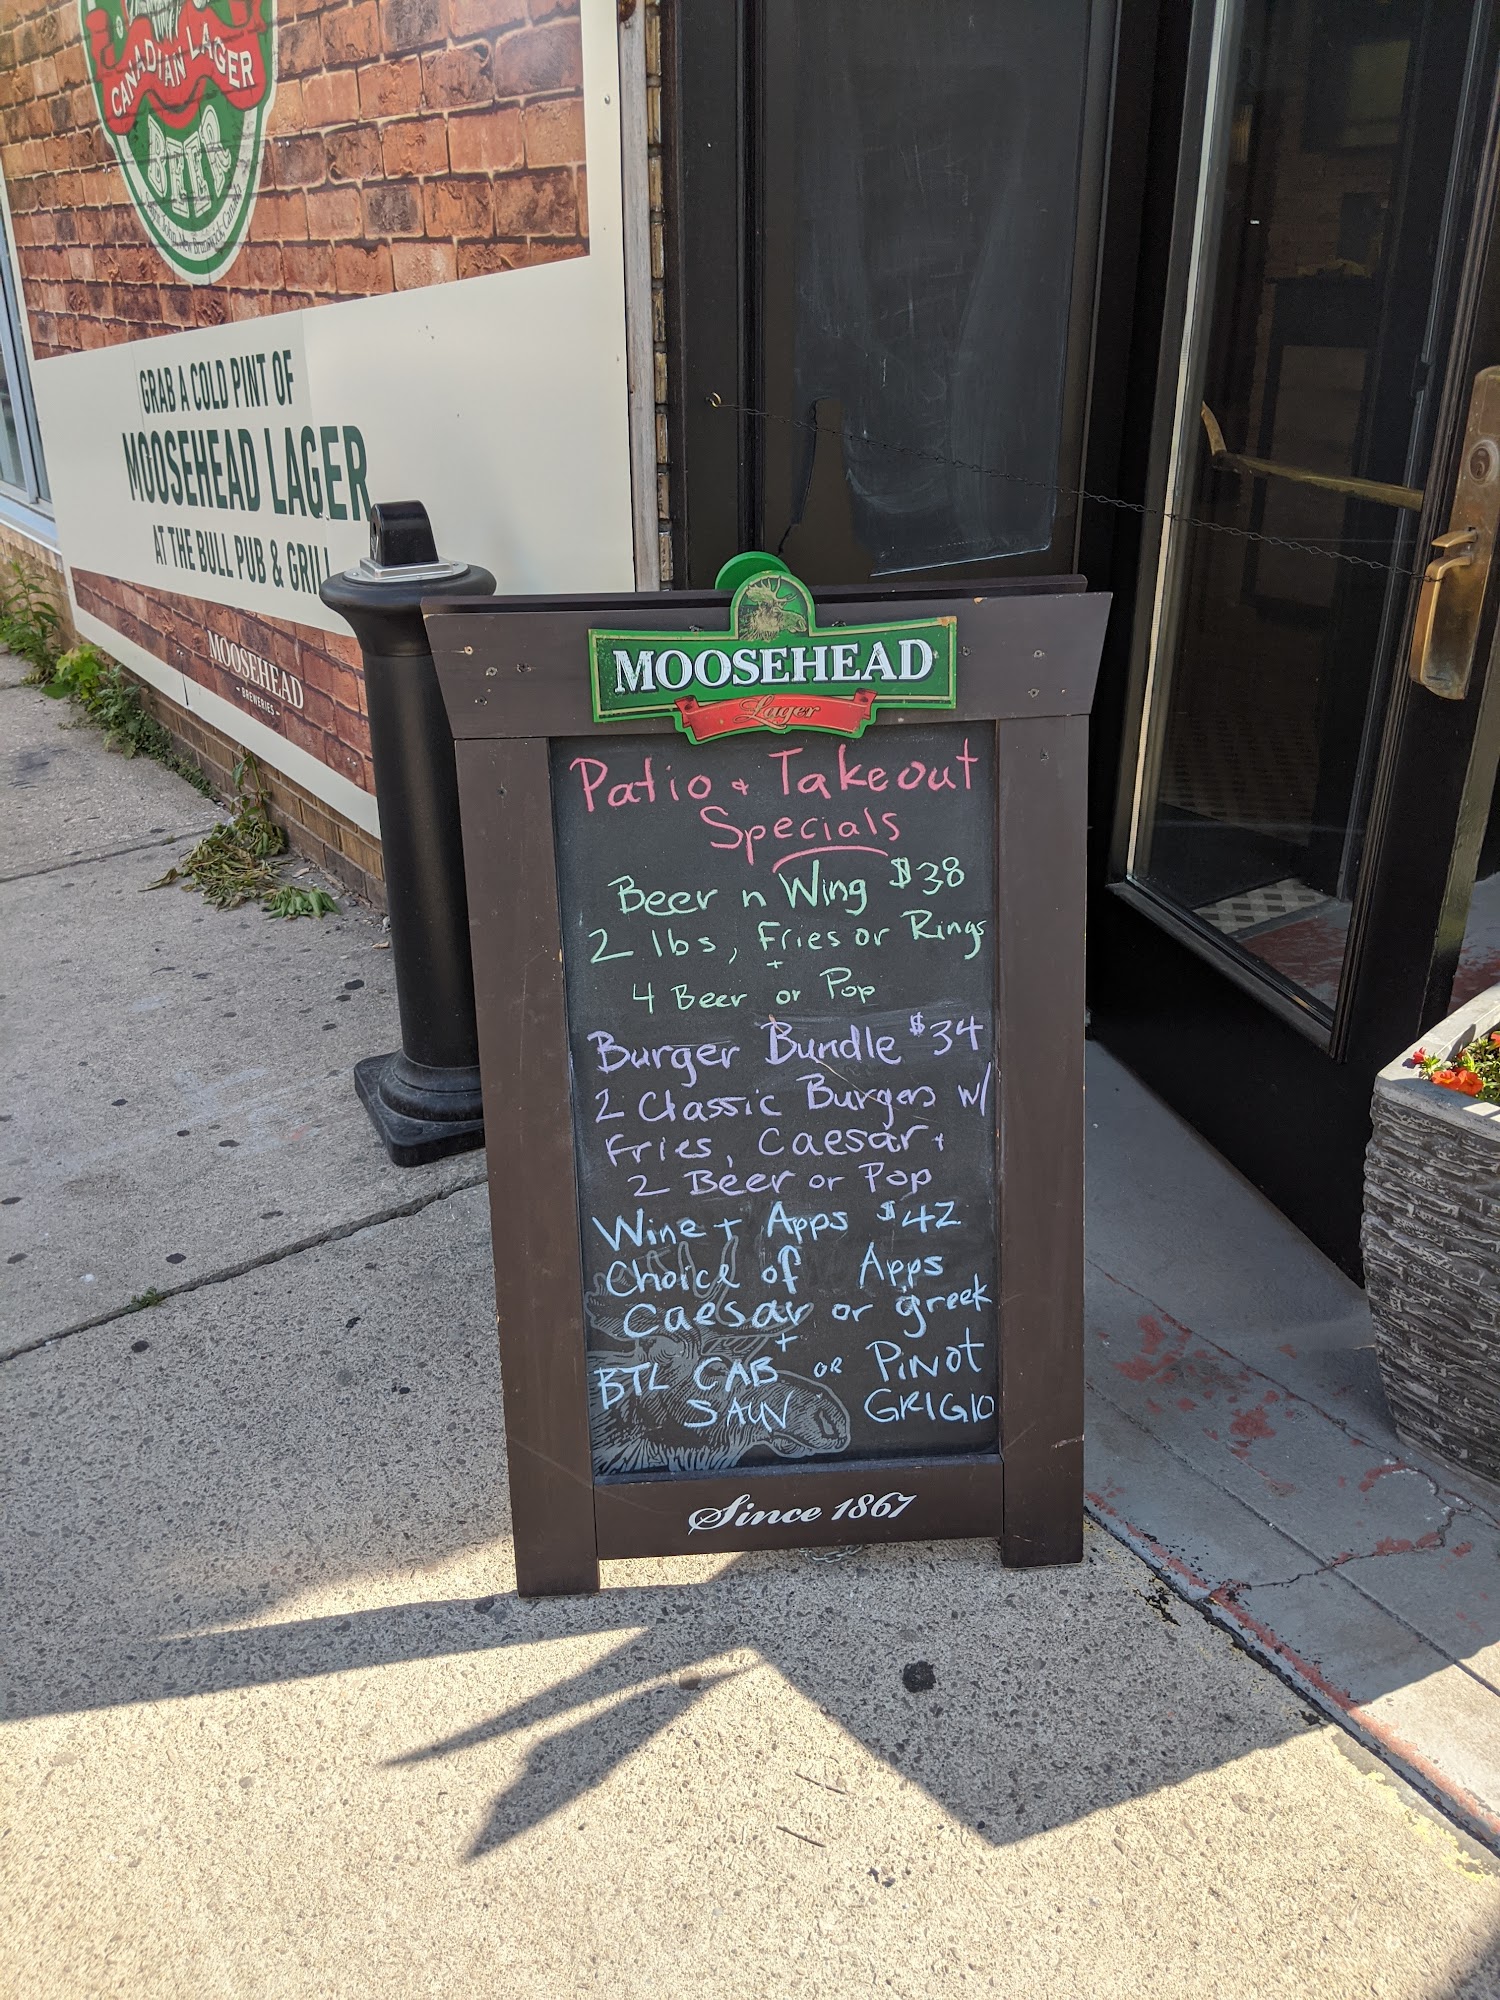 CANADIAN LAGER
BEER
GRAB A COLD PINT OF
MOOSEHEAD LAGER
AT THE BULL PUB & GRILL
MOOSEHEAD
- BREWERIES -
MOOSEHEAD
Lager
Patio + Takeout
Specials
Beer n Wing $38
2 lbs, Fries or Rings
+
4 Beer or Pop
Burger Bundle $34
2 Classic Burgers w/
Fries, Caesar +
2 Beer or Pop
Wine + Apps $42
Choice of Apps
Caesar or greek
+
BTL CAB OR PINOT
SAUV GRIGIO
Since 1867